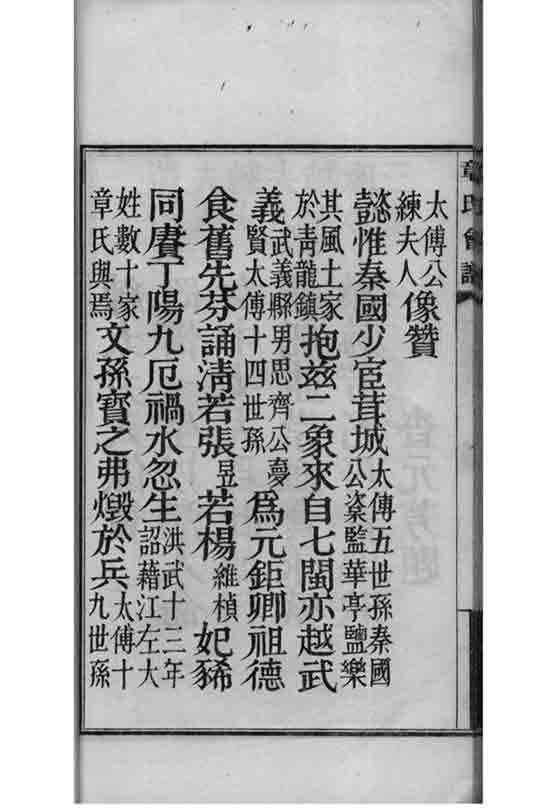 章氏會譜
太傅公練夫人像贊
懿惟秦國少宦茸城太傅五世孫秦國公楶監華亭鹽樂
其風土家於靑龍鎮抱茲二象來自七閩亦越武
義武義縣男思齊公夢賢太傅十四世孫爲元鉅卿祖德
食舊先芬誦淸若張昱若楊維楨妃豨
同賡丁陽九厄禍水忽生洪武十三年詔藉江左大
姓數十家章氏與焉文孫寶之弗燬於兵太傅十九世孫